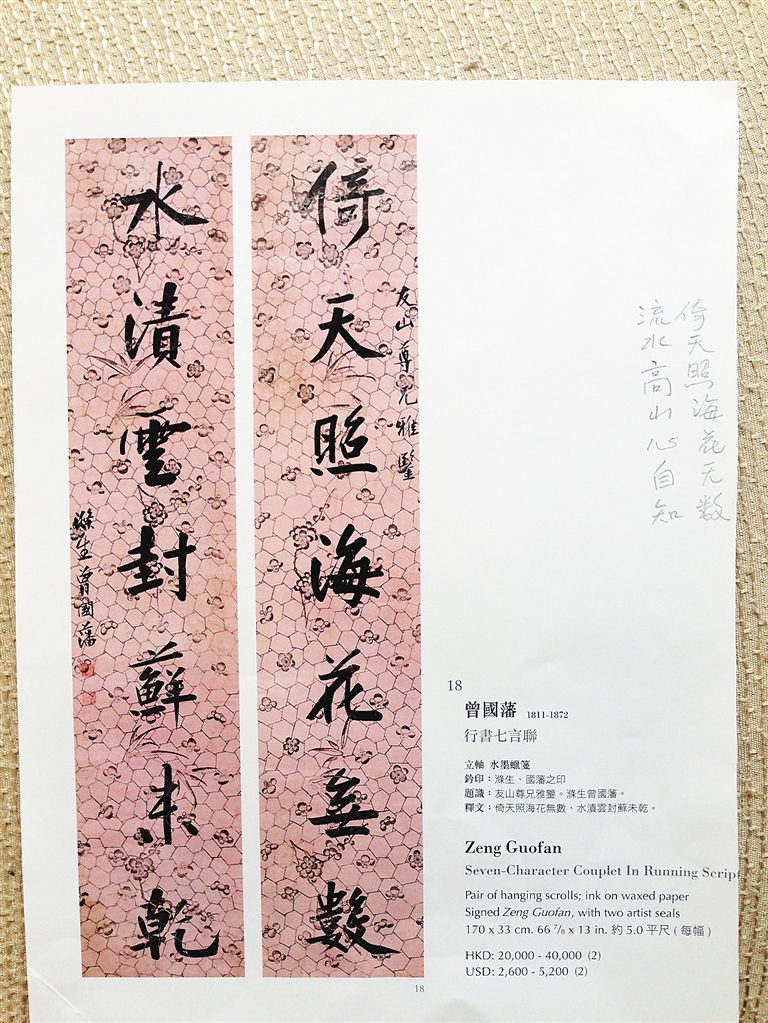 倚天照海花無數
友山尊兄雅鑒
水漬雲封蘚未乾
滌生曾國藩
倚天照海花无数
流水高山心自知
18
曾國藩 1811-1872
行書七言聯
立軸 水墨蠟箋
鈐印：滌生、國藩之印
題識：友山尊兄雅鑒。滌生曾國藩。
釋文：倚天照海花無數，水漬雲封蘇未乾。
Zeng Guofan
Seven-Character Couplet In Running Script
Pair of hanging scrolls; ink on waxed paper
Signed Zeng Guofan, with two artist seals
170 x 33 cm. 66 7/8 x 13 in. 約 5.0 平尺 ( 每幅 )
HKD: 20,000 - 40,000 (2)
USD: 2,600 - 5,200 (2)
18